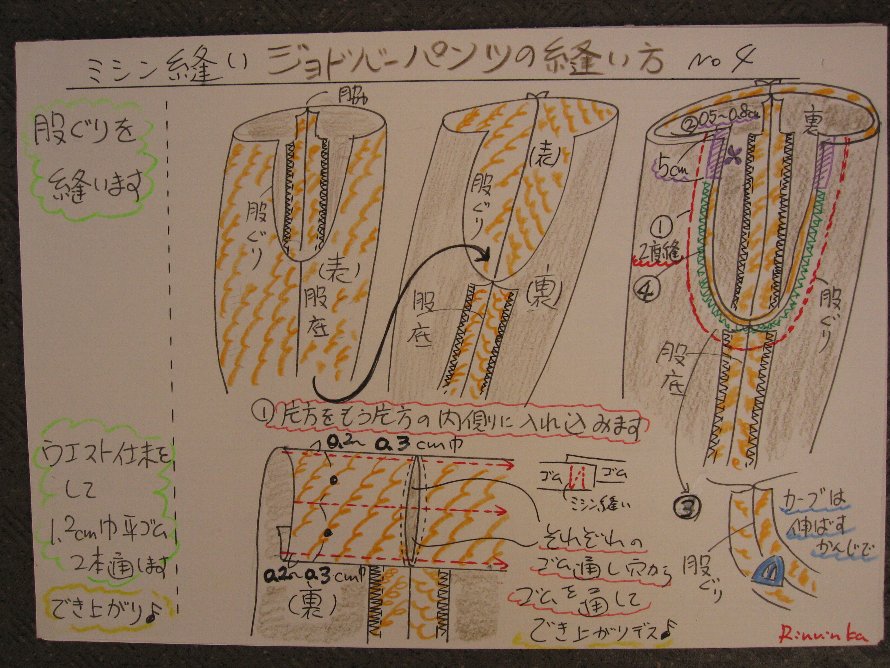 ミシン縫い ジョドバーパンツの縫い方 No 4
股ぐりを
縫います
脇
股ぐり
(表)
股底
(表)
股ぐり
(裏)
股底
②0.5~0.8cm
裏
5cm
①
2度縫
④
股ぐり
股底
①片方をもう片方の内側に入れ込みます
ウエスト仕末を
して
1.2cm巾平ゴム
2本通します
でき上がり♪
0.2~0.3cm巾
0.2~0.3cm巾
(裏)
ゴム
ゴム
ミシン縫い
それぞれの
ゴム通し穴から
ゴムを通して
でき上がりデス♪
③
カーブは
伸ばす
かんじで
股ぐり
Rinrinka